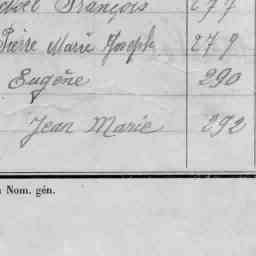 François 277
Pierre Marie Joseph 279
Eugène 290
Jean Marie 292
Nom. gén.